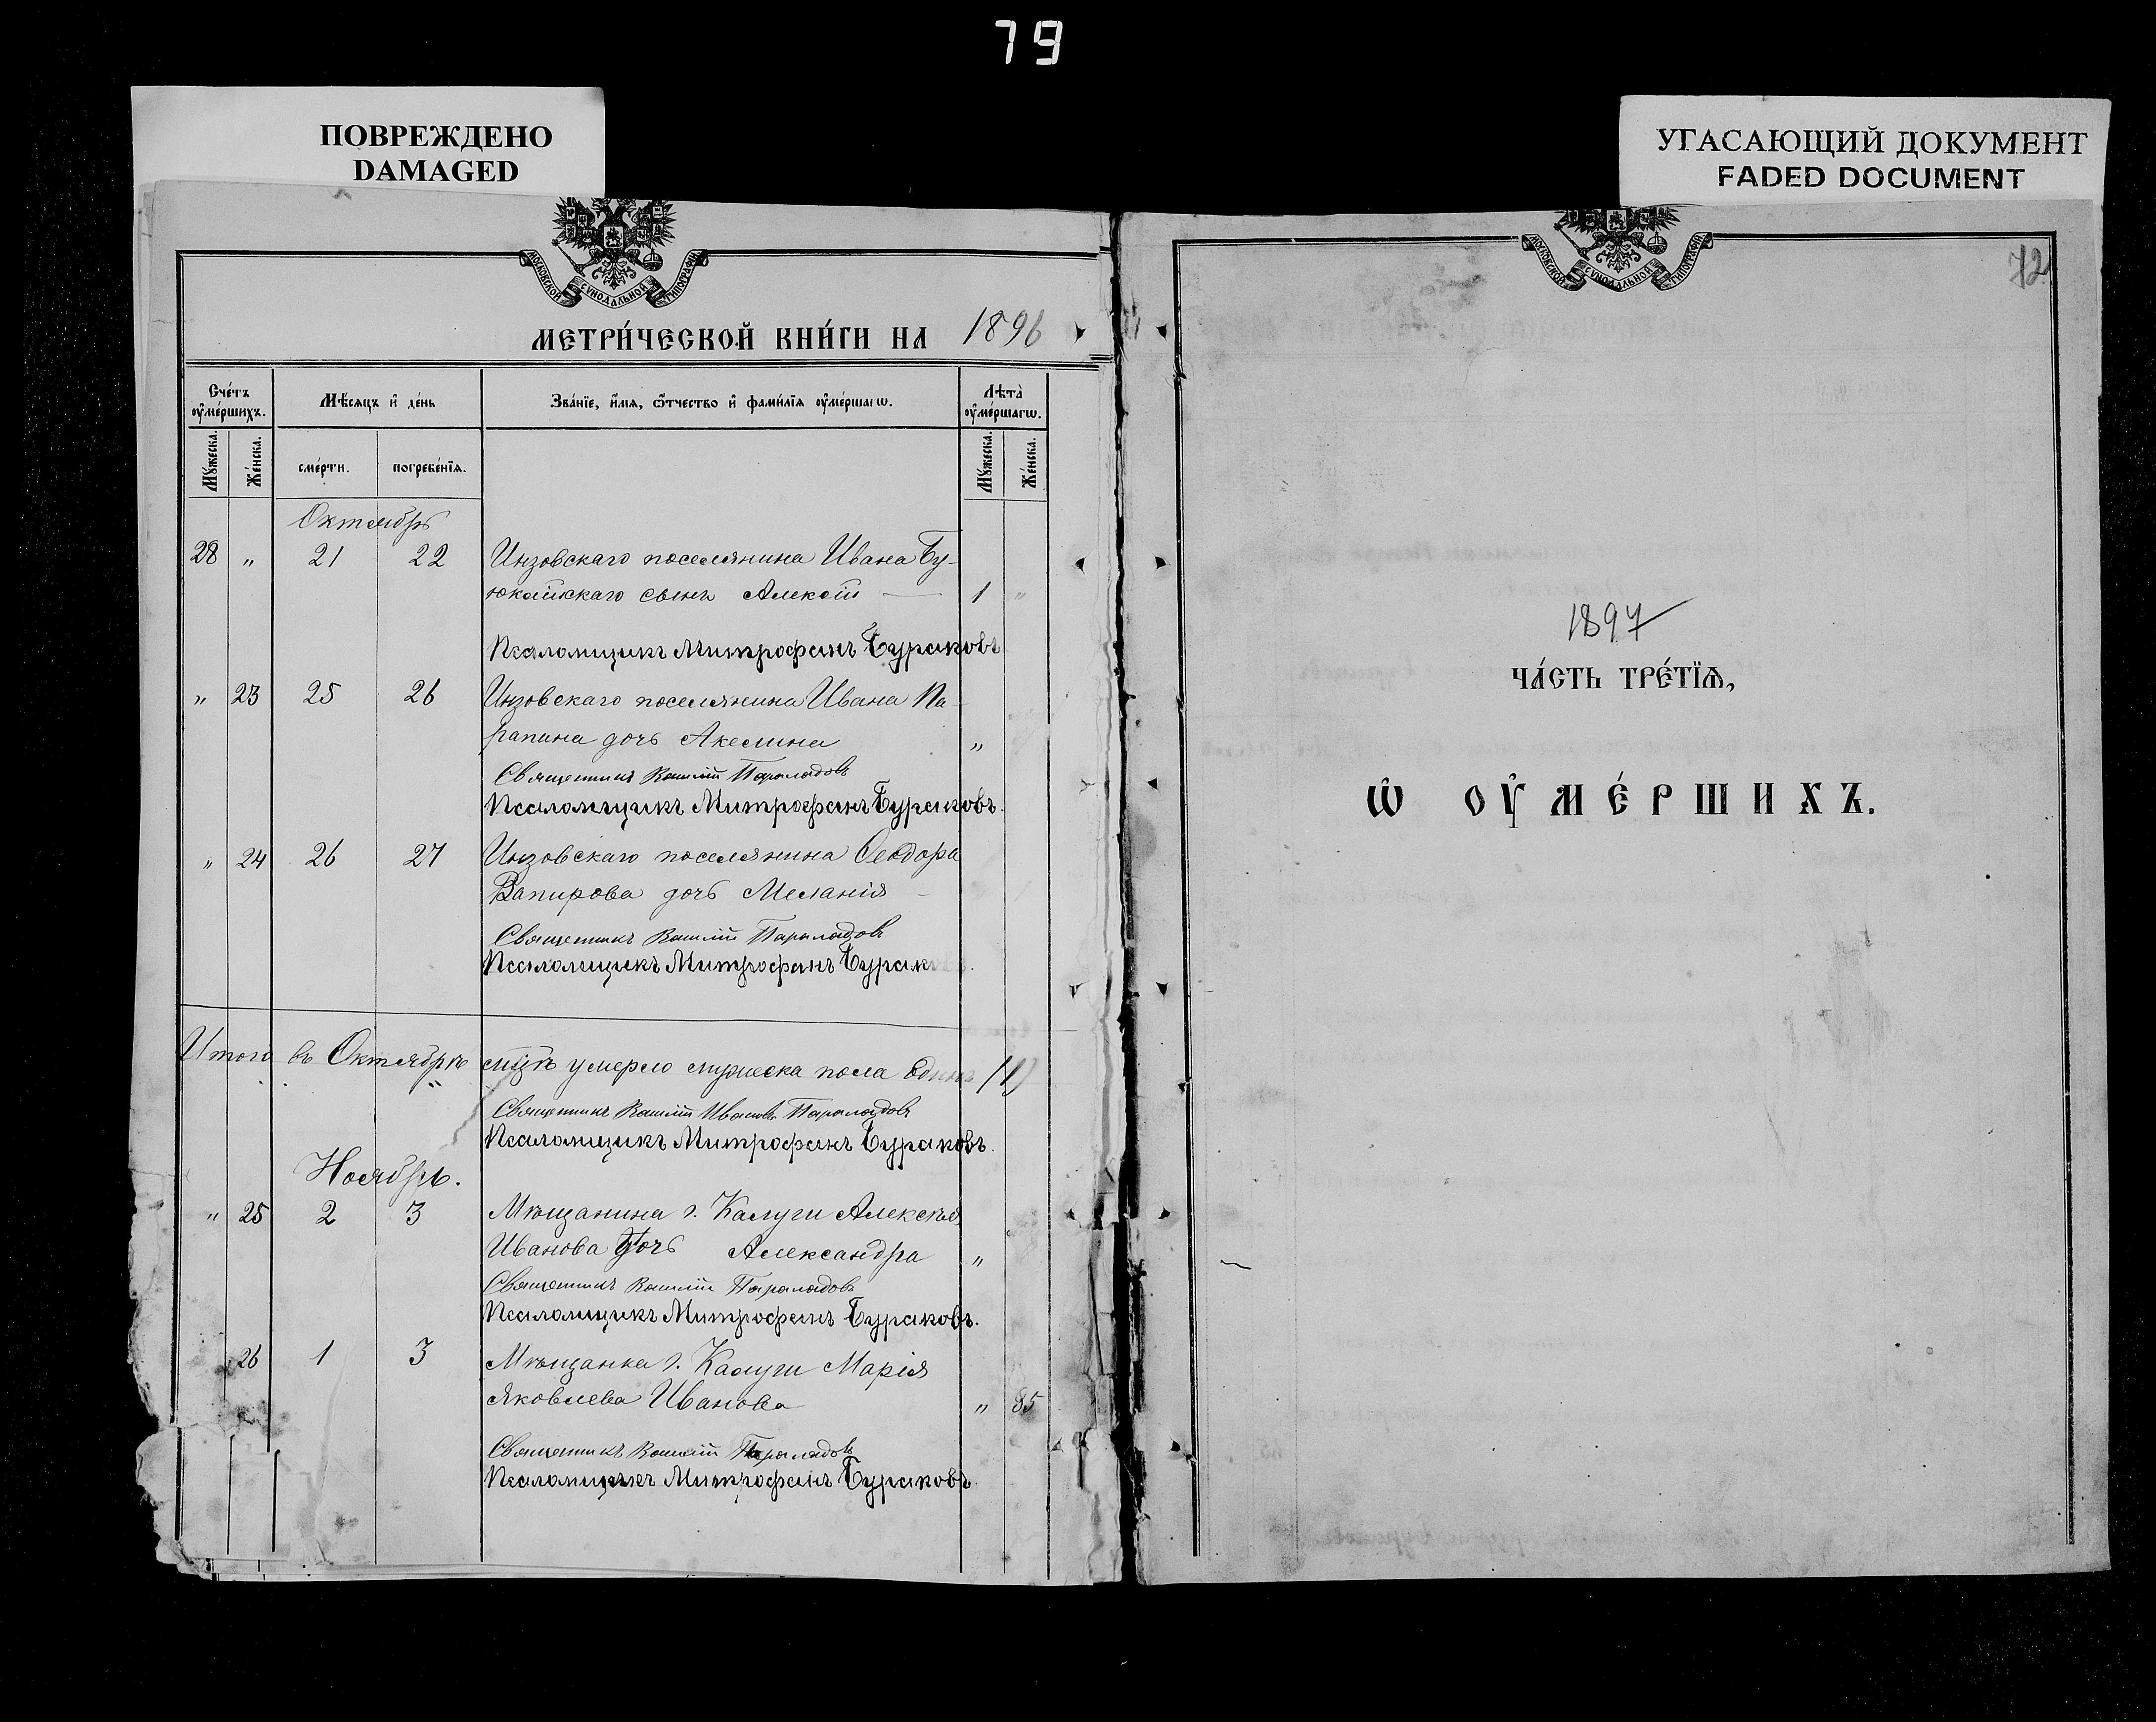 79
ПОВРЕЖДЕНО
DAMAGED
УГАСАЮЩИЙ ДОКУМЕНТ
FADED DOCUMENT
МОСКОВСКОЙ СѴНОДАЛЬНОЙ ТИПОГРАФІИ
МЕТРИ́ЧЕСКОЙ КНИ́ГИ НА 1896
Сче́тъ оу҆ме́ршихъ.
Мѣ́сяцъ и҆ де́нь
Зва́нїе, и҆́мѧ, ѻ҆́тчество и҆ фами́лїѧ оу҆ме́ршагѡ.
Лѣ́та оу҆ме́ршагѡ.
Мꙋ́жеска.
Же́нска.
сме́рти.
погребе́нїѧ.
Мꙋ́жеска.
Же́нска.
Октябрь
28 " 21 22 Инзовскаго поселянина Ивана Бу-
юклискаго сынъ Алексій — 1 "
Псаломщикъ Митрофанъ Бураковъ
" 23 25 26 Инзовскаго поселянина Ивана
дочь Акелина "
Священникъ Василій Параладовъ
Псаломщикъ Митрофанъ Бураковъ.
" 24 26 27 Инзовскаго поселянина Ѳеодора
Вапирова дочь Меланія
Священникъ Василій Параладовъ
Псаломщикъ Митрофанъ Бураковъ.
Итого въ Октябрѣ м҃цѣ умерло мужеска пола одинъ (1)
Священникъ Василій Ивановъ Параладовъ
Псаломщикъ Митрофанъ Бураковъ.
Ноябрь.
" 25 2 3 Мѣщанина г. Калуги Алексѣя
Иванова дочь Александра "
Священникъ Василій Параладовъ
Псаломщикъ Митрофанъ Бураковъ.
26 1 3 Мѣщанка г. Калуги Марія
Яковлева Иванова " 85
Священникъ Василій Параладовъ
Псаломщикъ Митрофанъ Бураковъ.
МОСКОВСКОЙ СѴНОДАЛЬНОЙ ТИПОГРАФІИ
72
1897
ЧА́СТЬ ТРЕ́ТЇѦ,
Ѡ҆ ОУ҆МЕ́РШИХЪ.